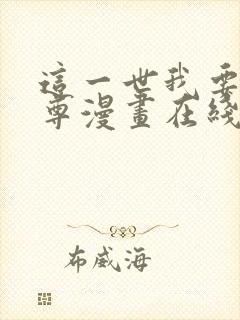 這一世我要
尊漫畫在綫
布威海